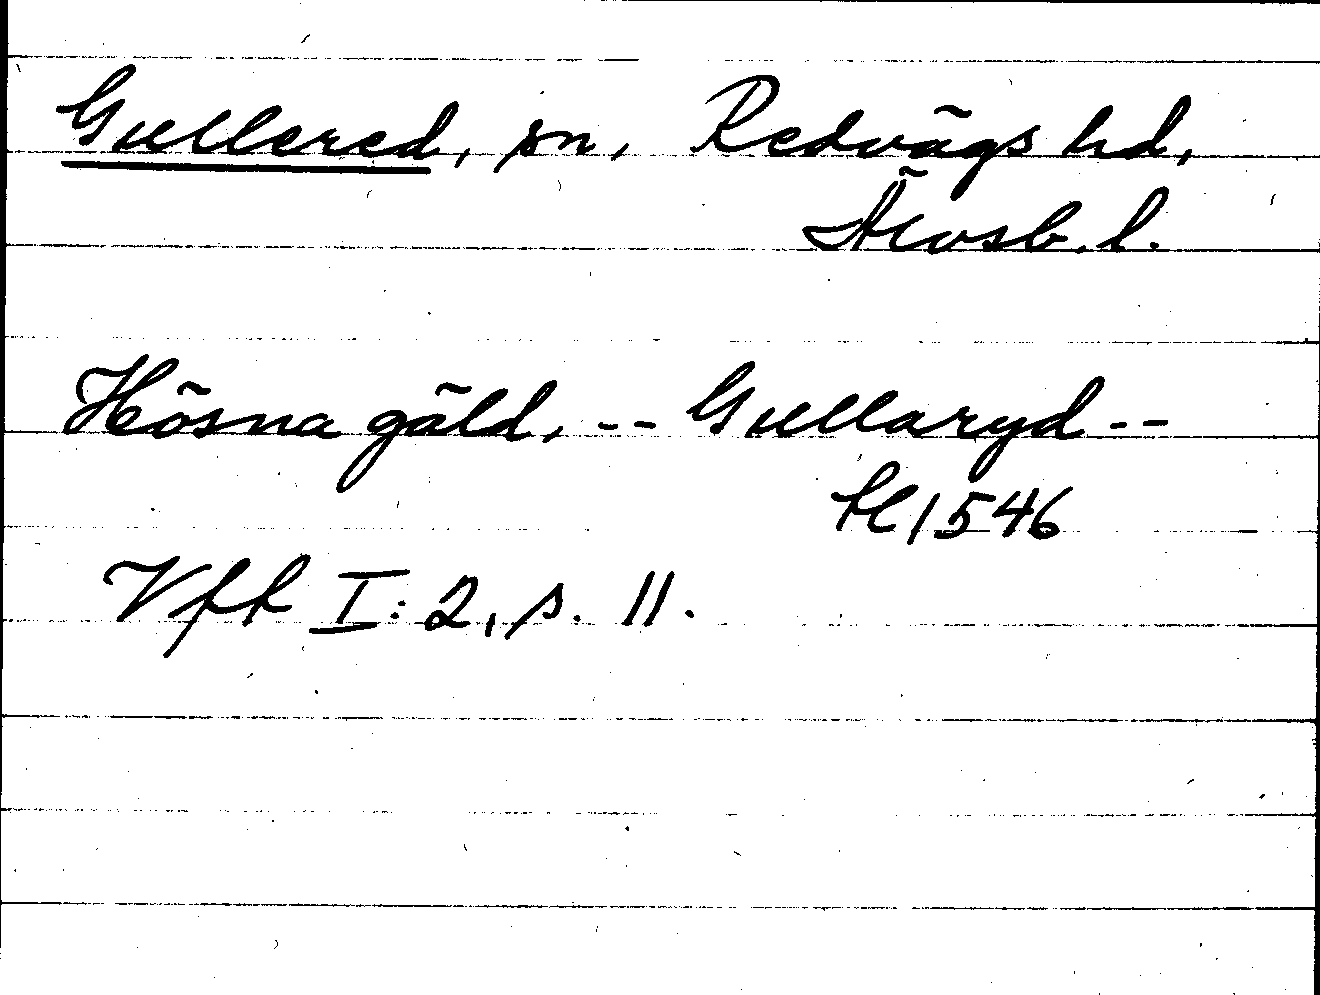 Gullered, sn, Redvägs hd,
Älvsb. l.
Hösna gäld, -- Gullaryd --
1546
Vft I: 2, s. 11.